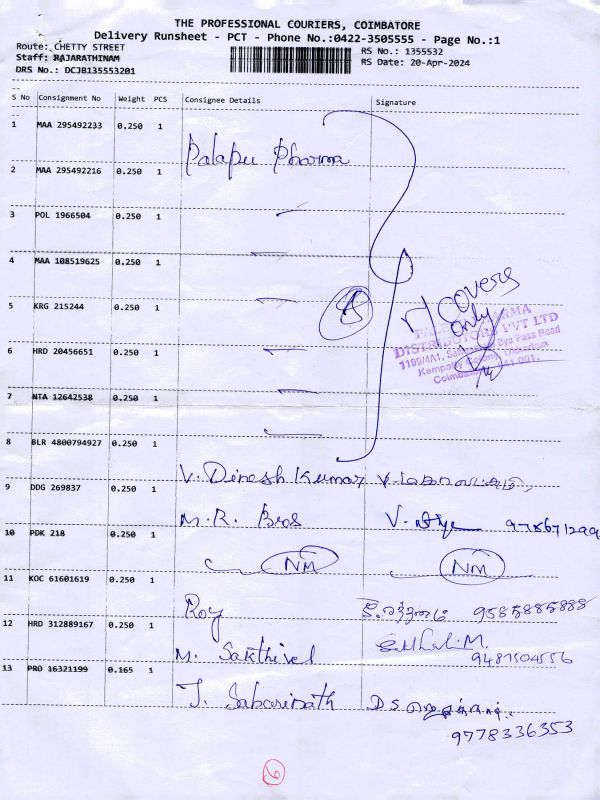 THE PROFESSIONAL COURIERS, COIMBATORE
Delivery Runsheet - PCT - Phone No.:0422-3505555 - Page No.:1
Route: CHETTY STREET
Staff: RAJARATHINAM
DRS No.: DCJB135553201
RS No.: 1355532
RS Date: 20-Apr-2024
S No Consignment No Weight PCS Consignee Details Signature
1 MAA 295492233 0.250 1
Palapu Pharma
2 MAA 295492216 0.250 1
3 POL 1966504 0.250 1
4 MAA 108519625 0.250 1
5 KRG 215244 0.250 1
covers
only
DISTRIBUTORS PVT LTD
6 HRD 20456651 0.250 1
7 NTA 12642538 0.250 1
8 BLR 4800794927 0.250 1
V. Dinesh Kumar
9 DDG 269837 0.250 1
M.R. Bros
10 PDK 218 0.250 1
NM NM
11 KOC 61601619 0.250 1
Roy 9585885888
12 HRD 312889167 0.250 1
M. Sakthivel 9487504556
13 PRO 16321199 0.165 1
J. Sabarinath
9778336353
6